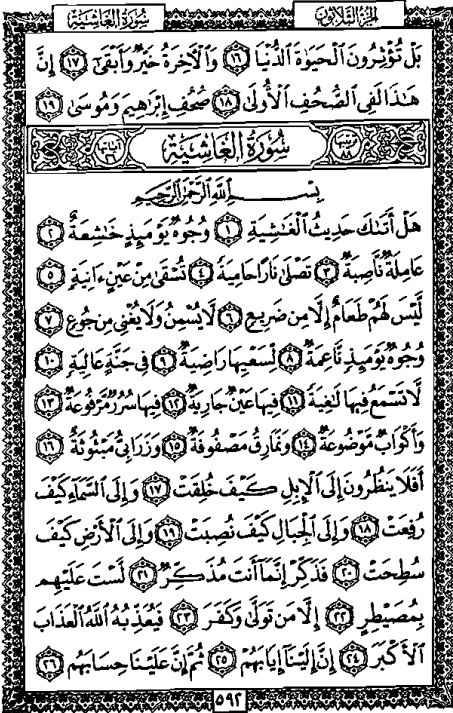 سُورَةُ الغَاشِيَةِ الجُزْءُ الثَّلَاثُونَ
بَلْ تُؤْثِرُونَ الْحَيَوٰةَ الدُّنْيَا ١٦ وَالْآخِرَةُ خَيْرٌ وَأَبْقَىٰ ١٧ إِنَّ
هَٰذَا لَفِي الصُّحُفِ الْأُولَىٰ ١٨ صُحُفِ إِبْرَاهِيمَ وَمُوسَىٰ ١٩
ترتيبها ٨٨ سُورَةُ الْغَاشِيَةِ آياتها ٢٦
بِسْمِ اللَّهِ الرَّحْمَٰنِ الرَّحِيمِ
هَلْ أَتَىٰكَ حَدِيثُ الْغَٰشِيَةِ ١ وُجُوهٌ يَوْمَئِذٍ خَٰشِعَةٌ ٢
عَامِلَةٌ نَّاصِبَةٌ ٣ تَصْلَىٰ نَارًا حَامِيَةً ٤ تُسْقَىٰ مِنْ عَيْنٍ ءَانِيَةٍ ٥
لَّيْسَ لَهُمْ طَعَامٌ إِلَّا مِن ضَرِيعٍ ٦ لَّا يُسْمِنُ وَلَا يُغْنِي مِن جُوعٍ ٧
وُجُوهٌ يَوْمَئِذٍ نَّاعِمَةٌ ٨ لِّسَعْيِهَا رَاضِيَةٌ ٩ فِي جَنَّةٍ عَالِيَةٍ ١٠
لَّا تَسْمَعُ فِيهَا لَٰغِيَةً ١١ فِيهَا عَيْنٌ جَارِيَةٌ ١٢ فِيهَا سُرُرٌ مَّرْفُوعَةٌ ١٣
وَأَكْوَابٌ مَّوْضُوعَةٌ ١٤ وَنَمَارِقُ مَصْفُوفَةٌ ١٥ وَزَرَابِيُّ مَبْثُوثَةٌ ١٦
أَفَلَا يَنظُرُونَ إِلَى الْإِبِلِ كَيْفَ خُلِقَتْ ١٧ وَإِلَى السَّمَاءِ كَيْفَ
رُفِعَتْ ١٨ وَإِلَى الْجِبَالِ كَيْفَ نُصِبَتْ ١٩ وَإِلَى الْأَرْضِ كَيْفَ
سُطِحَتْ ٢٠ فَذَكِّرْ إِنَّمَا أَنتَ مُذَكِّرٌ ٢١ لَّسْتَ عَلَيْهِم
بِمُصَيْطِرٍ ٢٢ إِلَّا مَن تَوَلَّىٰ وَكَفَرَ ٢٣ فَيُعَذِّبُهُ اللَّهُ الْعَذَابَ
الْأَكْبَرَ ٢٤ إِنَّ إِلَيْنَا إِيَابَهُمْ ٢٥ ثُمَّ إِنَّ عَلَيْنَا حِسَابَهُم ٢٦
٥٩٢